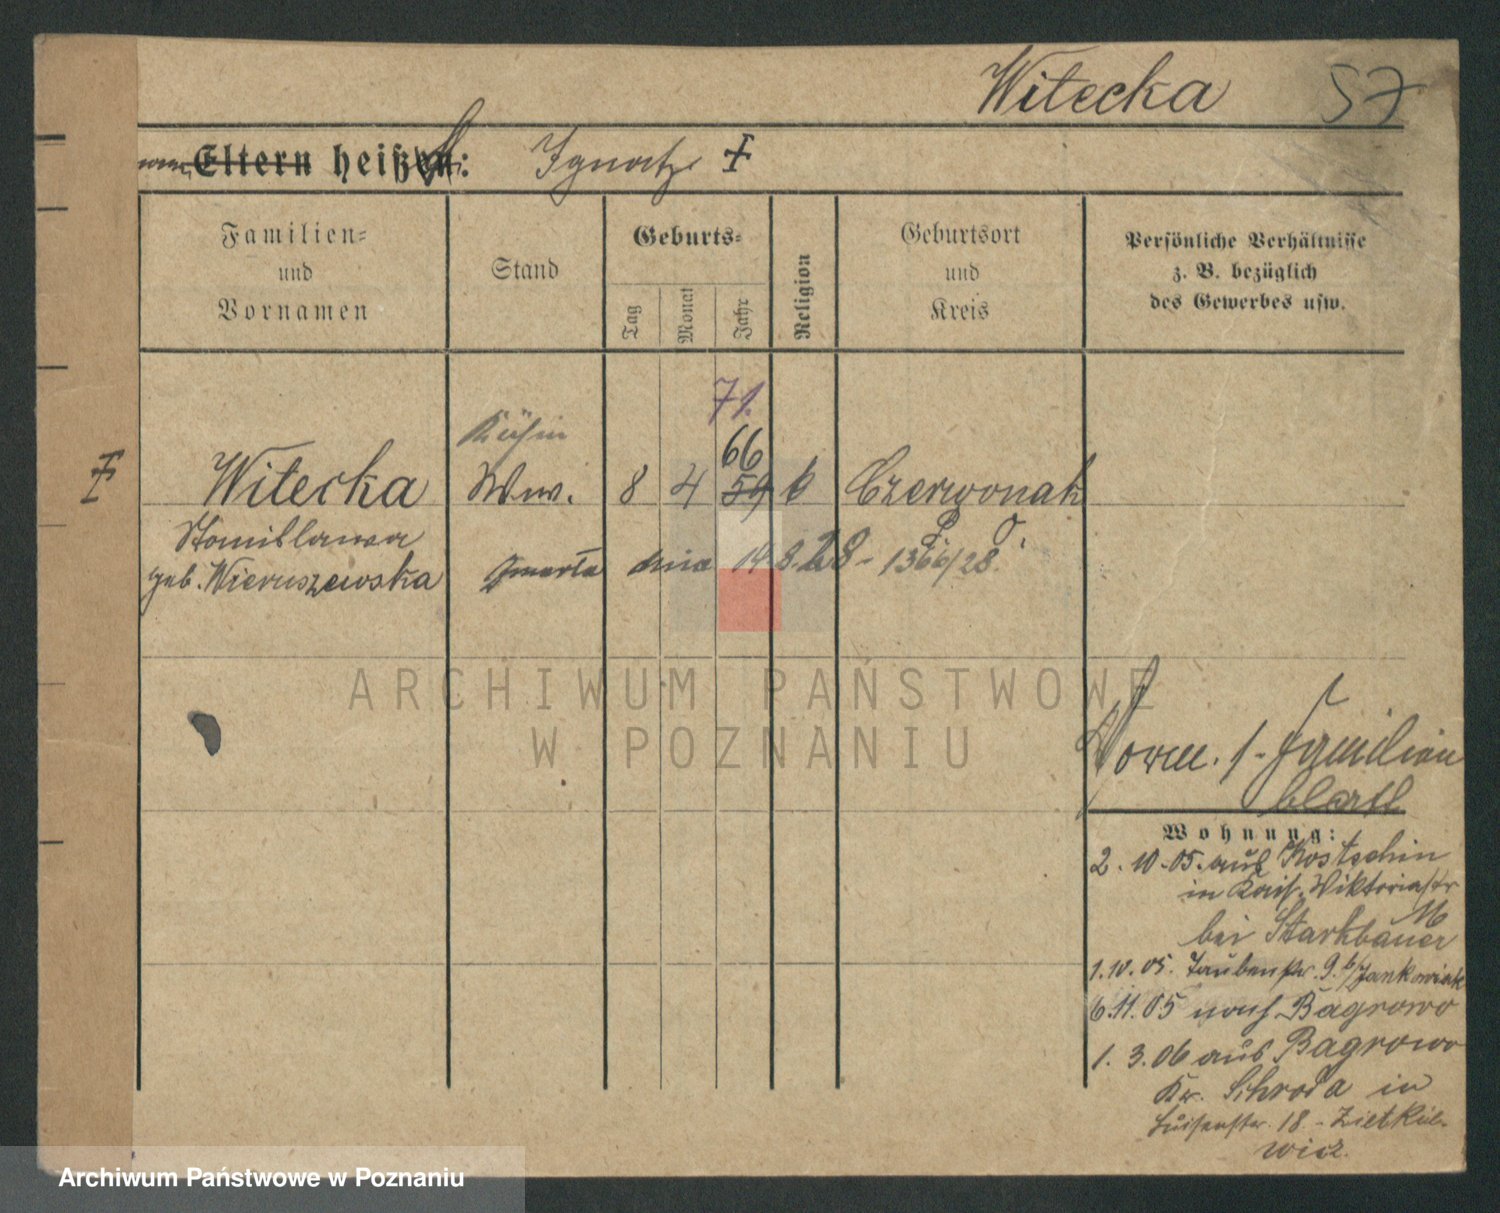 Witecka 57
Eltern heißen: Ignatz ‡
Familien=
und
Vornamen
Stand
Geburts=
Tag
Monat
Jahr
Religion
Geburtsort
und
Kreis
Persönliche Verhältnisse
z. B. bezüglich
des Gewerbes usw.
71.
Köchin
66
‡ Witecka Ww. 8 4 59 k Czerwonak
Stanislawa P. O.
geb. Wieruszewska zmarła dnia 14.8.28 - 1366/28.
ARCHIWUM PAŃSTWOWE
W POZNANIU
Form. 1 - Familien
blatt
Wohnung:
2.10.05. aus Kostschin
in Kais. Wiktoriastr
16
bei Starkbauer
1.10.05. Taubenstr. 9. b/Jankowiak
6.11.05 nach Bagrowo
1.3.06 aus Bagrowo
Kr. Schroda in
Luisenstr. 18 - Zietkie-
wicz.
Archiwum Państwowe w Poznaniu